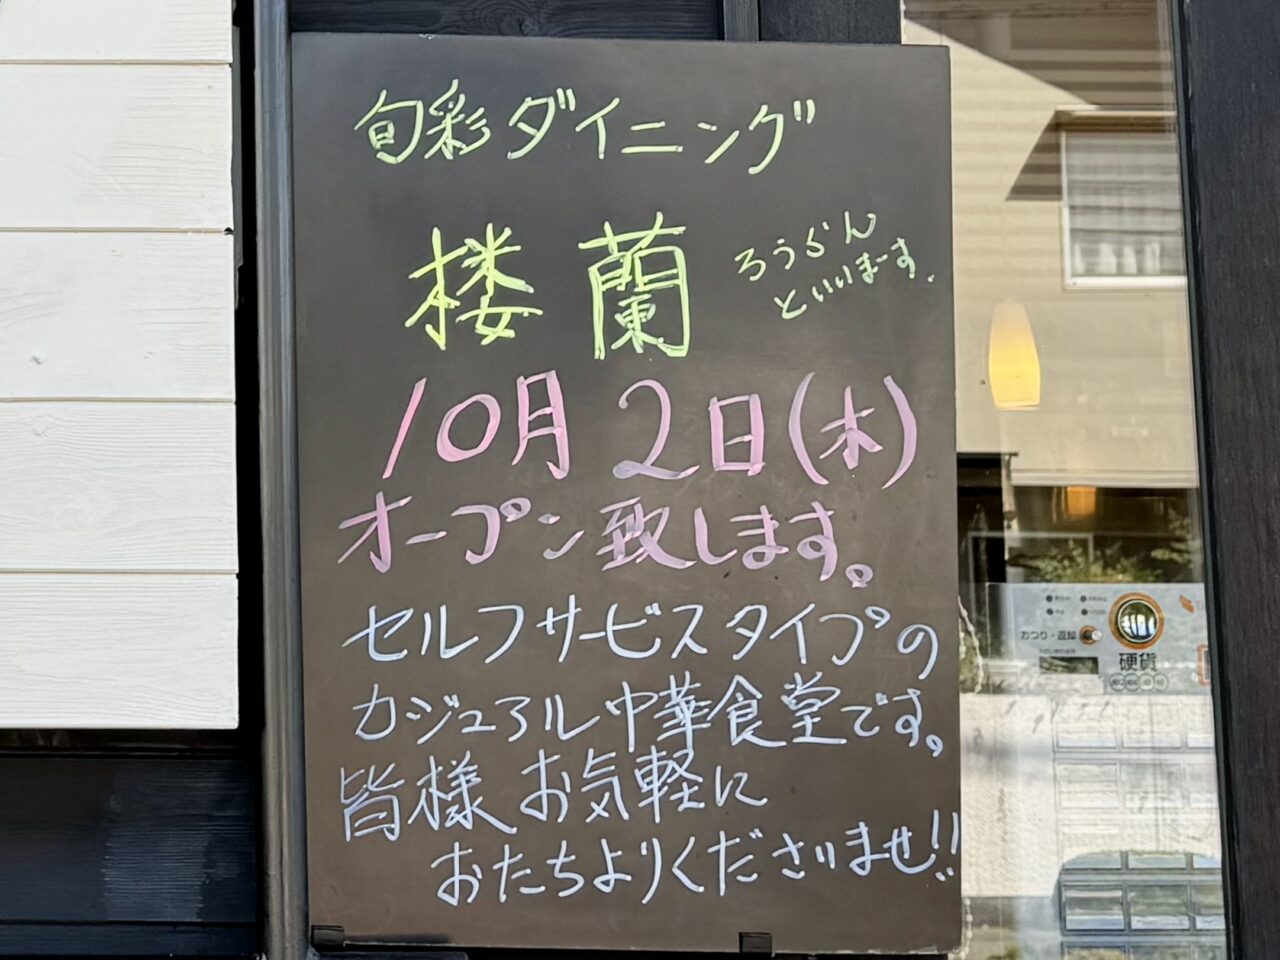 旬彩ダイニング
楼蘭
ろうらん
といいまーす。
10月2日(木)
オープン致します。
セルフサービスタイプの
カジュアル中華食堂です。
皆様お気軽に
おたちよりくださいませ!!
おつり・返却
硬貨